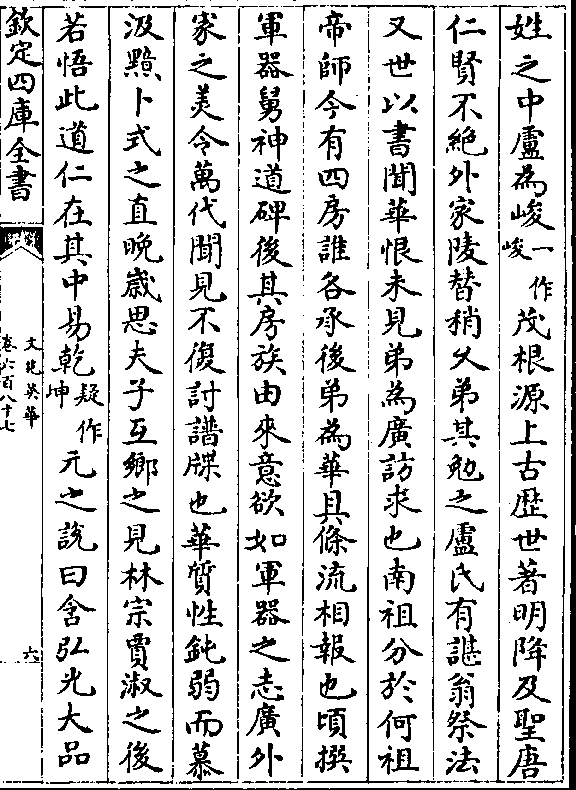 姓之中盧為峻一作峻茂根源上古歴世著明降及聖唐
仁賢不絶外家陵替稍乆弟其勉之盧氏有諶翁祭法
又世以書聞華恨未見弟為廣訪求也南祖分於何祖
帝師今有四房誰各承後弟為華具條流相報也頃撰
軍器舅神道碑後其房族由來意欲如軍器之志廣外
家之美令萬代聞見不復討譜牒也華質性鈍弱而慕
汲黯卜式之直晩嵗思夫子互鄉之見林宗賈淑之後
若悟此道仁在其中易乾疑作坤元之說曰含弘光大品
欽定四庫全書
文苑英華
卷六百八十七
六